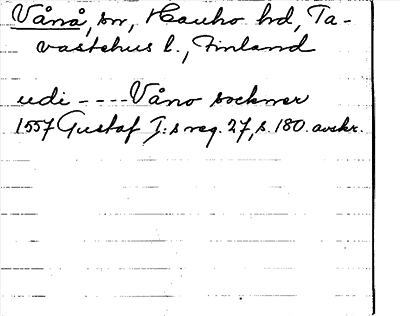 Vånå, sn, Hauho hd, Ta-
vastehus l., Finland
udi ---- Våno sockner
1557 Gustaf I:s reg. 27, s. 180. avskr.